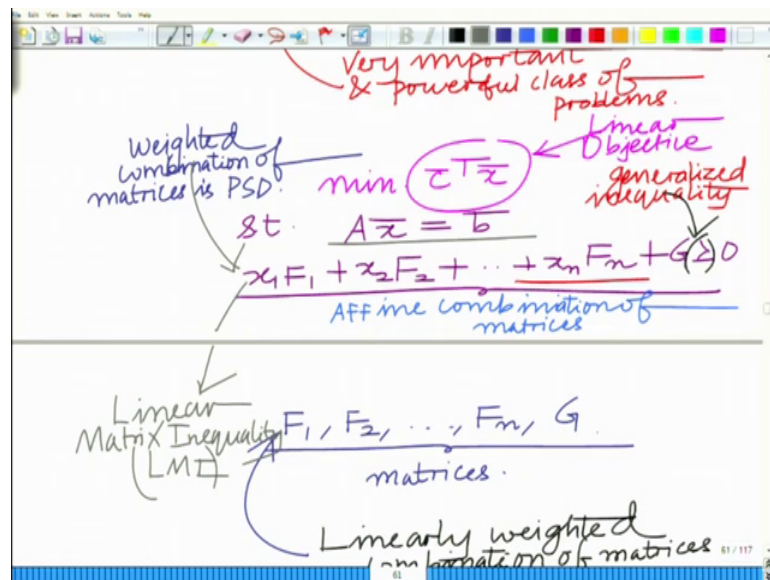 File Edit View Insert Actions Tools Help
Very important
& powerful class of
problems.
Linear
Objective
Weighted
combination of
matrices is PSD.
min. c̄ᵀx̄
generalized
inequality
st. Ax̄ = b̄
x₁F₁ + x₂F₂ + ... + xₙFₙ + G ≥ 0
Affine combination of
matrices
Linear
Matrix Inequality
(LMI)
F₁, F₂, ..., Fₙ, G.
matrices.
Linearly weighted
combination of matrices
61 / 117
61